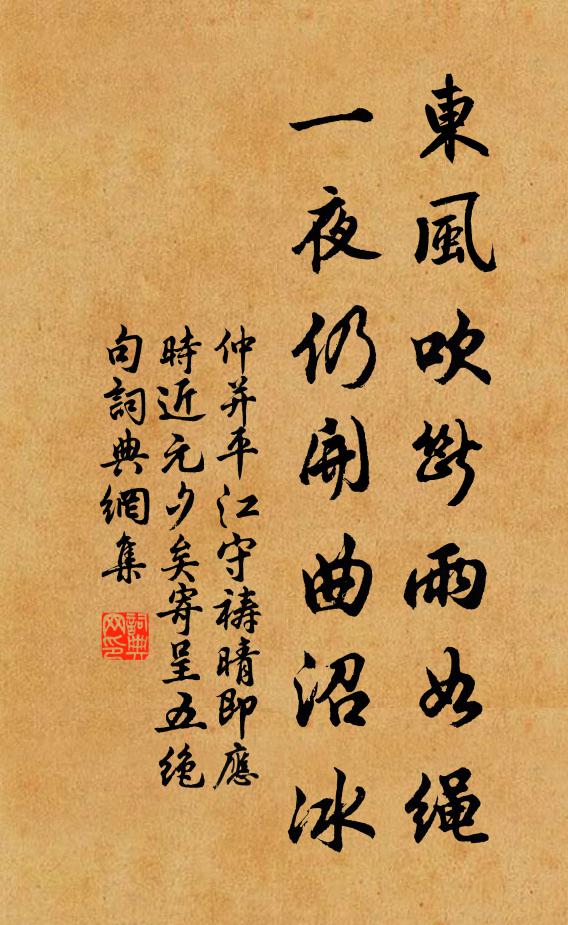 東風吹斷雨如繩
一夜仍開曲沼冰
仲并平江守禱晴即應
時近元夕矣寄呈五絶
句詞典網集
詞典
网印